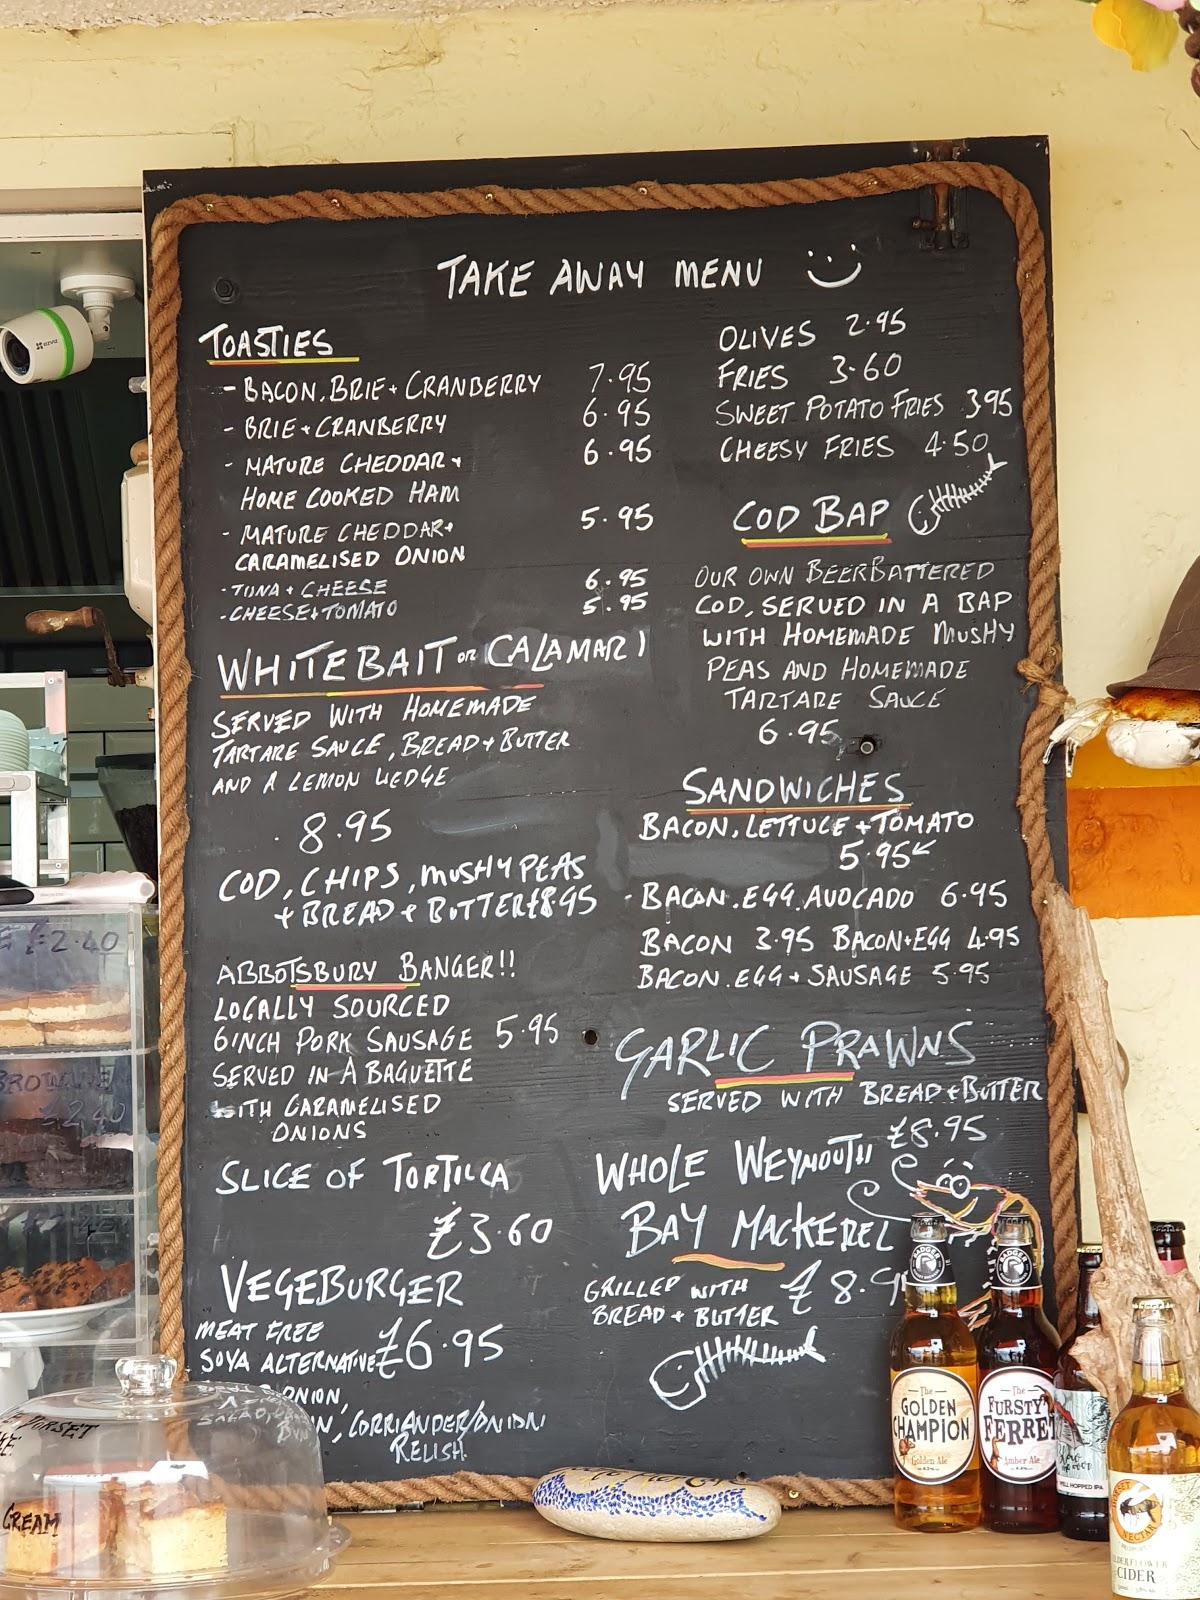 TAKE AWAY MENU
TOASTIES
- BACON, BRIE + CRANBERRY 7.95
- BRIE + CRANBERRY 6.95
- MATURE CHEDDAR + 6.95
HOME COOKED HAM
- MATURE CHEDDAR + 5.95
CARAMELISED ONION
- TUNA + CHEESE 6.95
- CHEESE + TOMATO 5.95
WHITEBAIT or CALAMARI
SERVED WITH HOMEMADE
TARTARE SAUCE, BREAD + BUTTER
AND A LEMON WEDGE
8.95
COD, CHIPS, MUSHY PEAS
+ BREAD + BUTTER £8.95
ABBOTSBURY BANGER!!
LOCALLY SOURCED
6INCH PORK SAUSAGE 5.95
SERVED IN A BAGUETTE
WITH CARAMELISED
ONIONS
SLICE OF TORTILLA
£3.60
VEGEBURGER
MEAT FREE
SOYA ALTERNATIVE £6.95
ONION,
CORRIANDER/ONION
RELISH
OLIVES 2.95
FRIES 3.60
SWEET POTATO FRIES 3.95
CHEESY FRIES 4.50
COD BAP
OUR OWN BEERBATTERED
COD, SERVED IN A BAP
WITH HOMEMADE MUSHY
PEAS AND HOMEMADE
TARTARE SAUCE
6.95
SANDWICHES
BACON, LETTUCE + TOMATO
5.95
- BACON. EGG. AVOCADO 6.95
BACON 3.95 BACON + EGG 4.95
BACON. EGG + SAUSAGE 5.95
GARLIC PRAWNS
SERVED WITH BREAD + BUTTER
£8.95
WHOLE WEYMOUTH
BAY MACKEREL
GRILLED WITH £8.9
BREAD + BUTTER
£2.40
BROWNIE
2.40
DORSET
CREAM
BADGER
The
GOLDEN
CHAMPION
Golden Ale
BADGER
The
FURSTY
FERRET
Amber Ale
WELL HOPPED IPA
NECTAR
ELDERFLOWER
CIDER